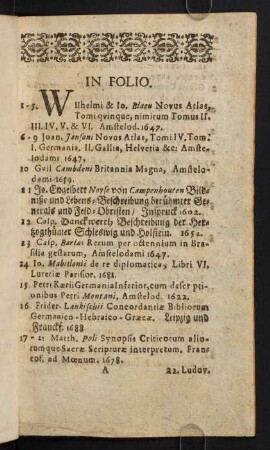 IN FOLIO.
1-5. WIlhelmi & Io. Blaeu Novus Atlas,
Tomi quinque, nimirum Tomus II.
III. IV. V. & VI. Amstelod. 1647.
6-9 Joan. Jansoni Novus Atlas, Tomi IV. Tom.
I. Germania. II. Gallia, Helvetia &c: Amste-
lodami 1647.
10 Guil Cambdeni Britannia Magna, Amstelo-
dami 1659.
11 Jo. Engelbert Noyse von Campenhouten Bild-
niße und Lebens-Beschreibung berühmter Ge-
nerals und Feld-Obristen / Inspruck
12 Casp. Danckwerts Beschreibung der Her-
zogthümer Schleswig und Holstein. 1652.
13 Casp. Barlæi Rerum per octennium in Bra-
silia gestarum, Amstelodami 1647.
14 Io. Mabillonii de re diplomatica, Libri VI,
Luteriæ Parisior. 1681.
15 Petri Kærii Germania Inferior, cum descr pti-
onibus Petri Montani, Amstelod. 1622.
16 Frider. Lankischii Concordantiæ Bibliorum
Germanico-Hebraico-Græcæ. Leipzig und
Franckf. 1688
17-21 Matth. Poli Synopsis Criticorum alio-
rumque Sacræ Scripturæ interpretum, Franc
cof. ad Mœnum. 1678.
A 22. Ludov.